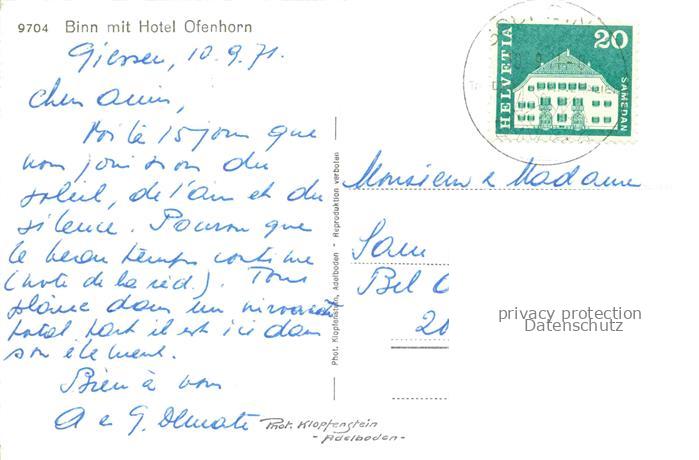 9704 Binn mit Hotel Ofenhorn
Giessen, 10.9.71.
Chers amis,
Voilà 15 jours que
nous jouissons du
soleil, de l'air et du
silence. Pourvu que
le beau temps continue
(note de la réd.). Tous
dans un
total, tant il est ici dans
son élément.
Bien à vous
A e G.
Phot. Klopfenstein
- Adelboden -
Phot. Klopfenstein, Adelboden - Reproduktion verboten
HELVETIA
20
SAMEDAN
Monsieur & Madame
Sam
Bel
20
privacy protection
Datenschutz